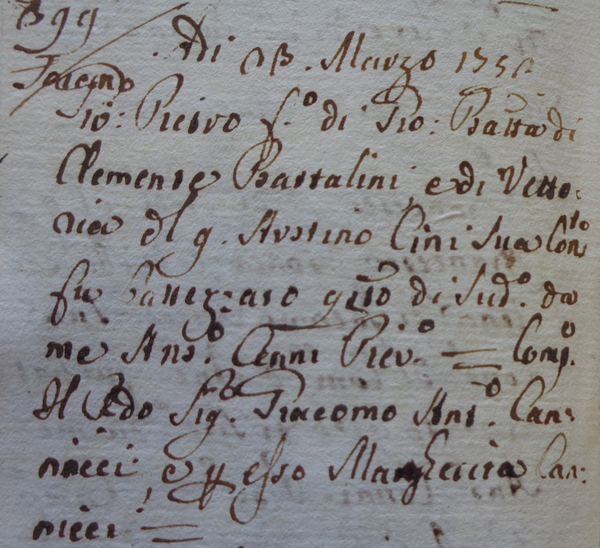 399
Adi 23. Marzo 175
Gio: Pietro f.º di Gio: Batta di
Clemente Battalini, e di Vetto:
ria del q. Austino Cini Sua Con
fu Battezzato qsto di Sud.º da
me Ant.º Cenni Piev.º = Comp.
Il Sig. Giacomo Ant.º Can:
nicci, e p esso Margherita Can:
nicci =